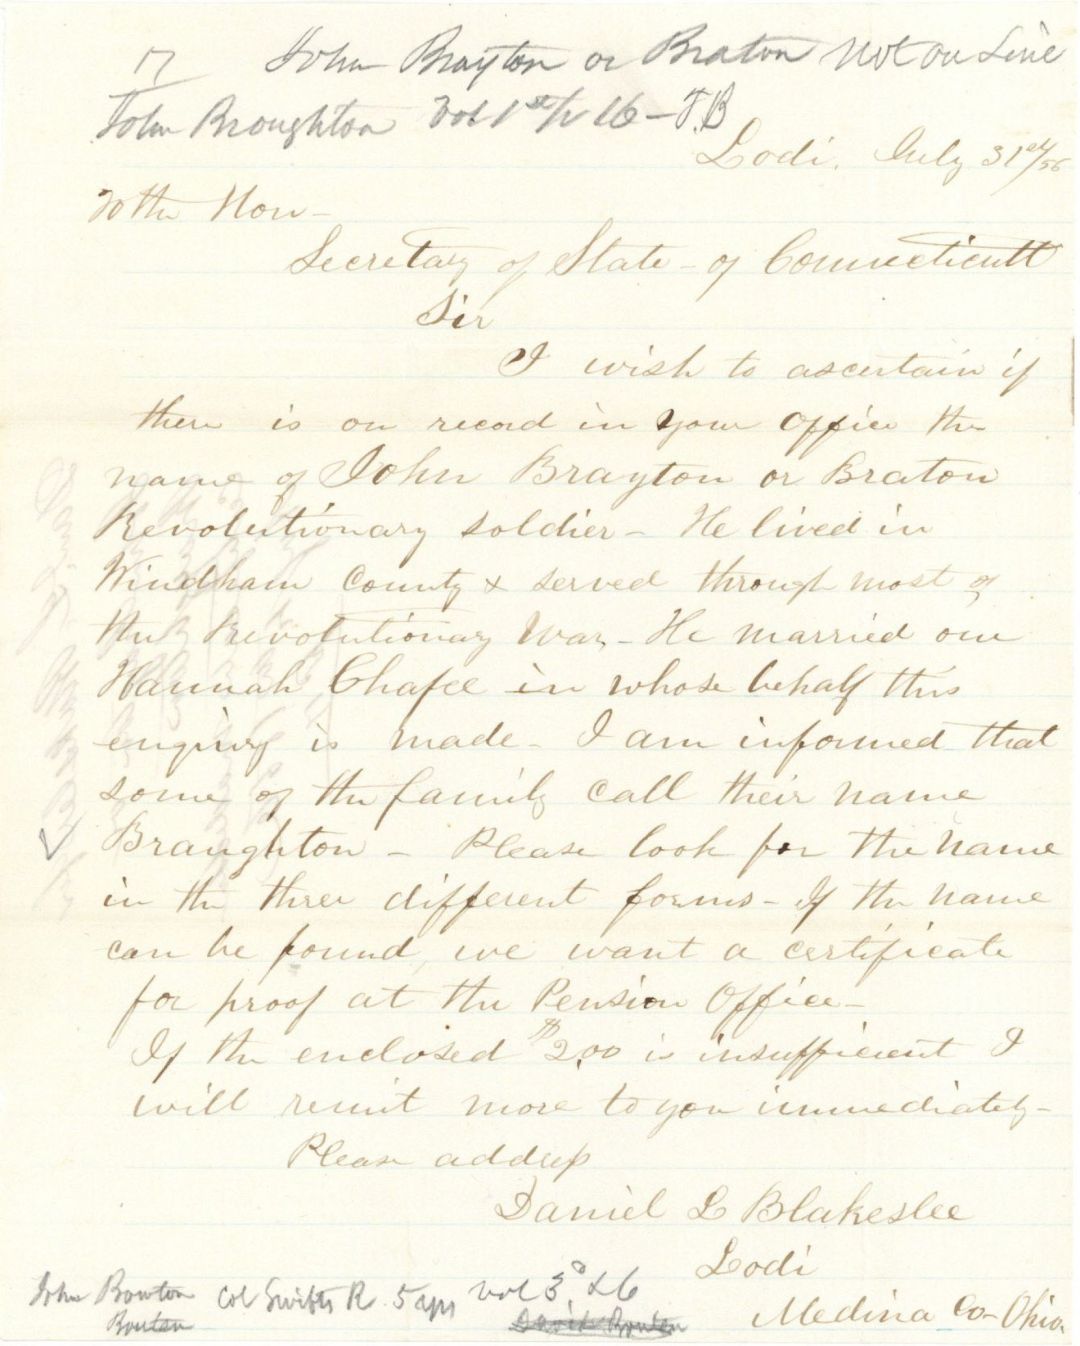 17 John Brayton or Braton Not on Line
John Broughton Vol 1st p 16 - J.B
Lodi. July 31st/56
To the Hon -
Secretary of State - of Connecticutt
Sir
I wish to ascertain if
there is on record in your Office the
name of John Brayton or Braton
Revolutionary soldier - He lived in
Windham County & served through most of
the Revolutionary War, - He married one
Hannah Chapee in whose behalf this
enquiry is made - I am informed that
some of the family call their name
Braughton - Please look for the name
in the three different forms - If the name
can be found, we want a certificate
for proof at the Pension Office -
If the enclosed $2.00 is insufficient I
will remit more to you immediately -
Please address
Daniel L Blakeslee
Lodi
Medina Co - Ohio
John Bowton Col Swifts R. 5 Vol 3d 26
Bouten David Bouten